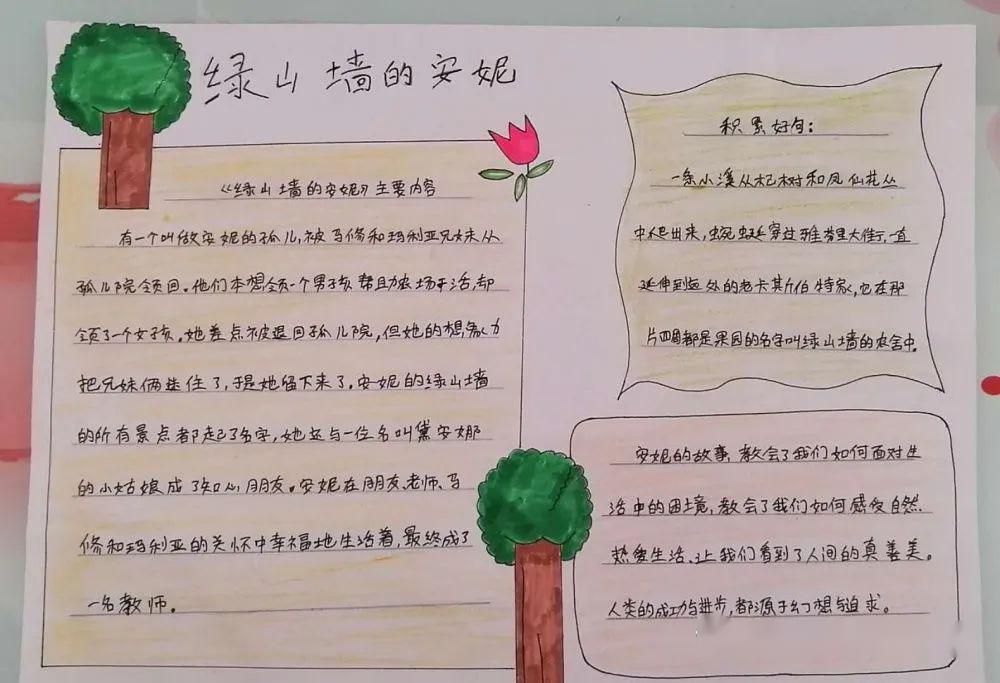 绿山墙的安妮
《绿山墙的安妮》主要内容
有一个叫做安妮的孤儿,被马修和玛利亚兄妹从
孤儿院领回。他们本想领一个男孩帮助农场干活,却
领了一个女孩。她差点被退回孤儿院,但她的想象力
把兄妹俩迷住了,于是她留下来了。安妮的绿山墙
的所有景点都起了名字,她还与一位名叫黛安娜
的小姑娘成了知心朋友。安妮在朋友、老师、马
修和玛利亚的关怀中幸福地生活着,最终成了
一名教师。
积累好句:
一条小溪从杞树和凤仙花丛
中爬出来,蜿蜒穿过雅芬里大街,一直
延伸到远处的老卡其伯特家,它在那
片四周都是果园的名字叫绿山墙的农舍中。
安妮的故事,教会了我们如何面对生
活中的困境,教会了我们如何感受自然、
热爱生活、让我们看到了人间的真善美。
人类的成功与进步,都源于幻想与追求。